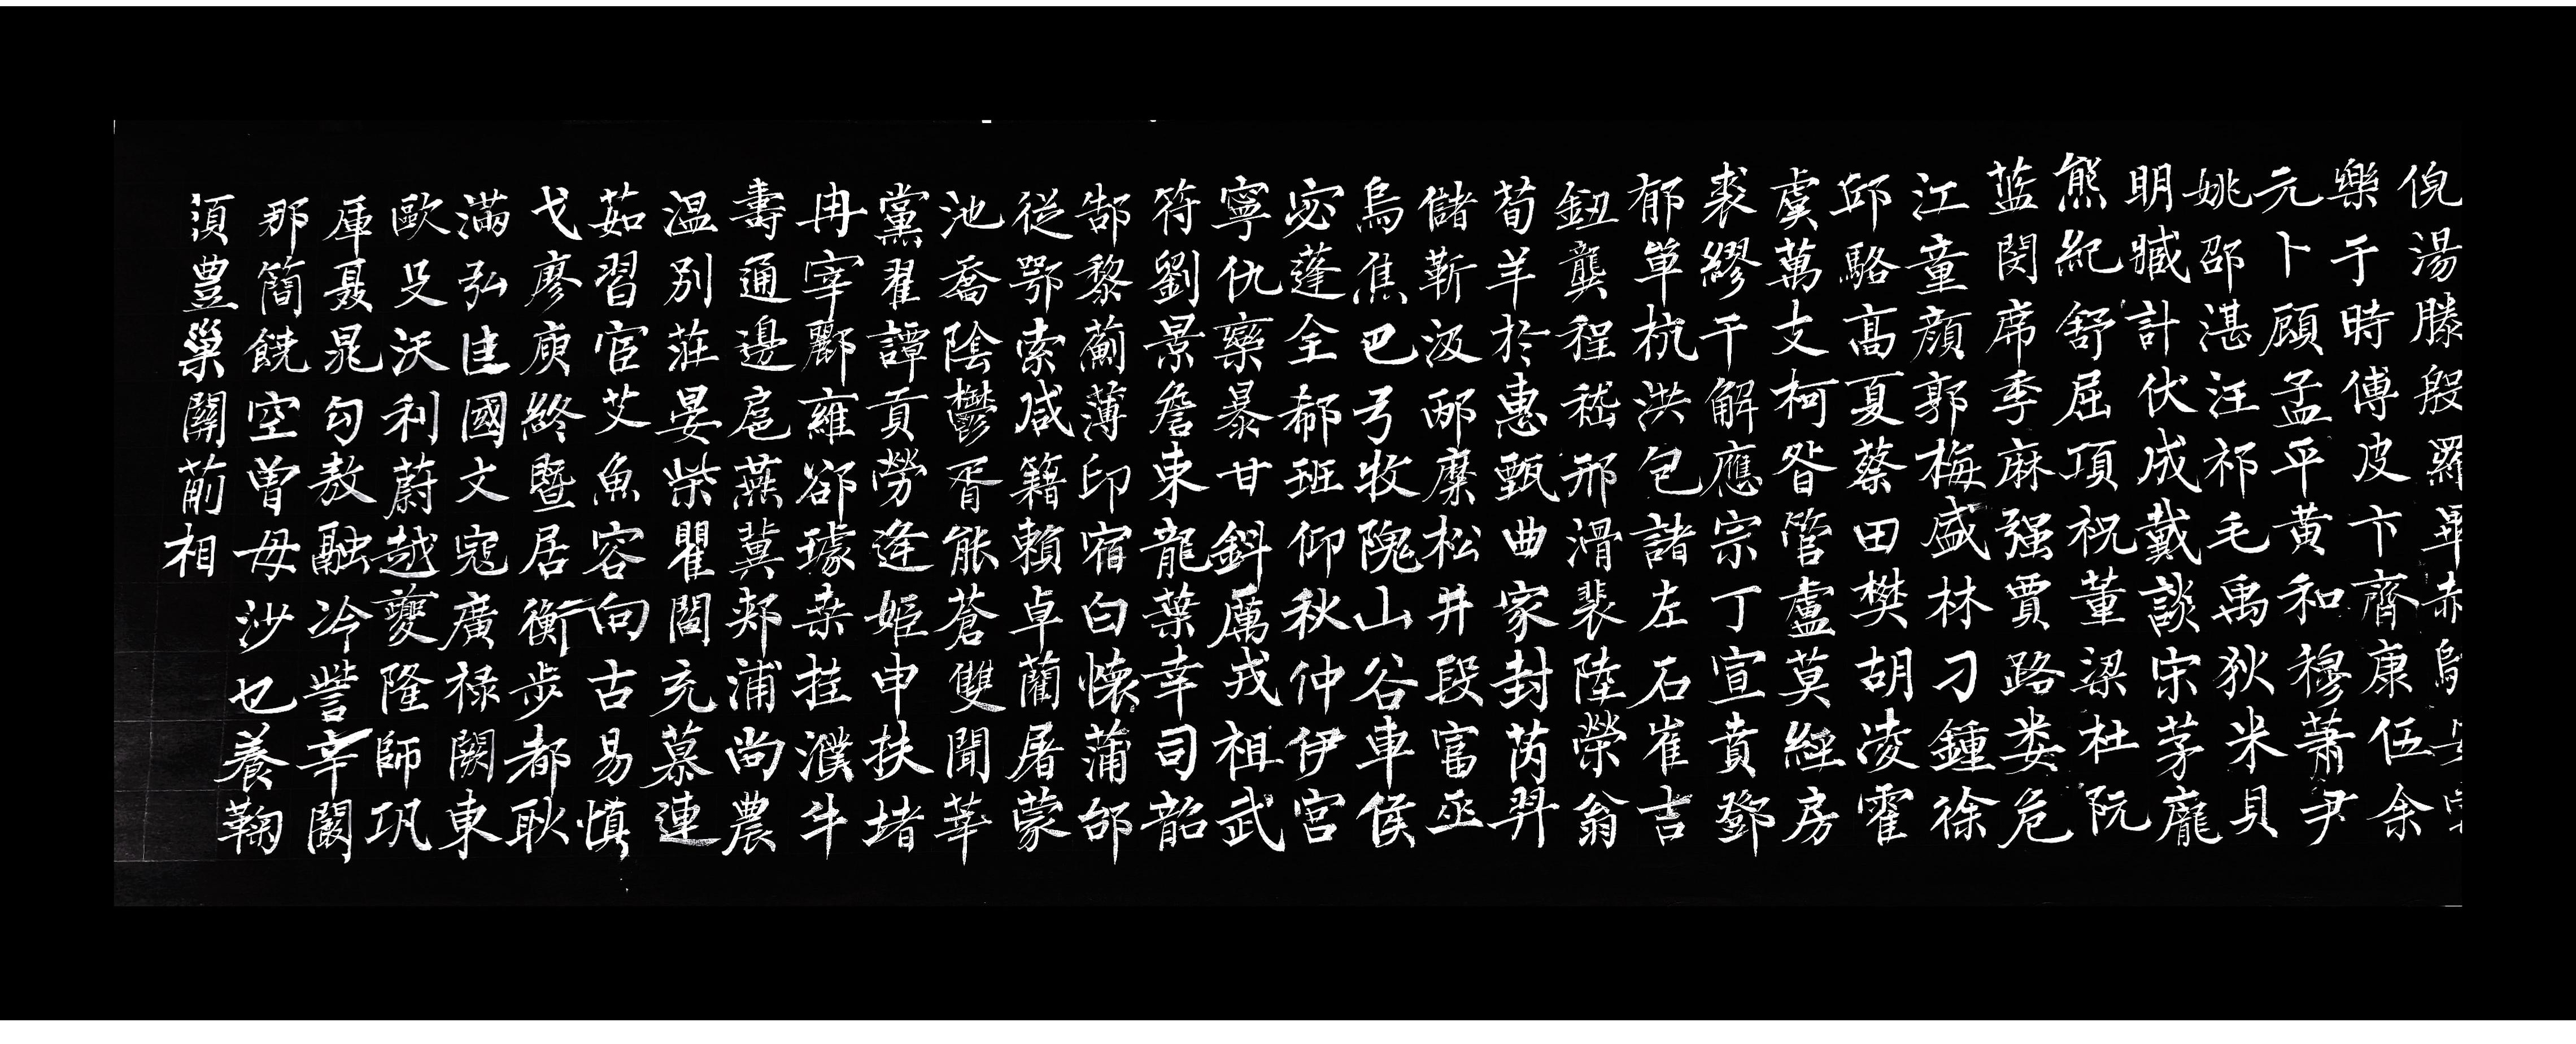 倪湯滕殷羅畢郝鄔安常
樂于時傅皮卞齊康伍余
元卜顧孟平黄和穆蕭尹
姚邵湛汪祁毛禹狄米貝
明臧計伏成戴談宋茅龐
熊紀舒屈項祝董梁杜阮
蓝閔席季麻强賈路娄危
江童顔郭梅盛林刁鍾徐
邱駱高夏蔡田樊胡凌霍
虞萬支柯昝管盧莫經房
裘繆干解應宗丁宣賁鄧
郁單杭洪包諸左石崔吉
鈕龔程嵇邢滑裴陸榮翁
荀羊於惠甄曲家封芮羿
儲靳汲邴糜松井段富巫
烏焦巴弓牧隗山谷車侯
宓蓬全郗班仰秋仲伊宮
寧仇欒暴甘鈄厲戎祖武
符劉景詹束龍葉幸司韶
郜黎薊薄印宿白懷蒲邰
從鄂索咸籍賴卓藺屠蒙
池喬陰鬱胥能蒼雙聞莘
黨翟譚貢勞逄姬申扶堵
冉宰酈雍郤璩桑桂濮牛
壽通邊扈燕冀郟浦尚農
温別莊晏柴瞿閻充慕連
茹習宦艾魚容向古易慎
戈廖庾終暨居衡步都耿
滿弘匡國文寇廣禄闕東
歐殳沃利蔚越夔隆師巩
厙聶晁勾敖融冷訾辛闞
那簡饒空曾毋沙乜養鞠
須豊巢關蒯相